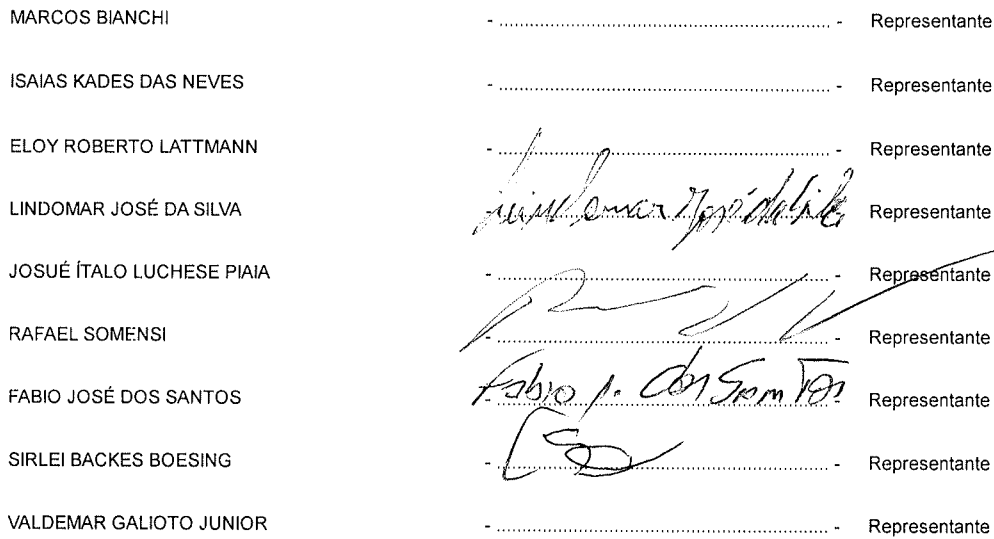 MARCOS BIANCHI - ........ - Representante
ISAIAS KADES DAS NEVES - ........ - Representante
ELOY ROBERTO LATTMANN - ........ - Representante
LINDOMAR JOSÉ DA SILVA - Lindomar José da Silva - Representante
JOSUÉ ÍTALO LUCHESE PIAIA - ........ - Representante
RAFAEL SOMENSI - ........ - Representante
FABIO JOSÉ DOS SANTOS - Fabio J. dos Santos - Representante
SIRLEI BACKES BOESING - ........ - Representante
VALDEMAR GALIOTO JUNIOR - ........ - Representante